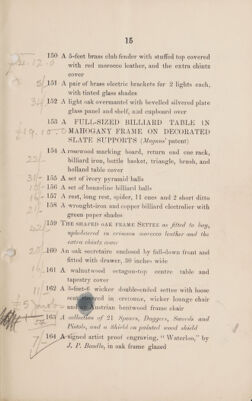 15
150 A 5-feet brass club fender with stuffed top covered
with red morocco leather, and the extra chintz
cover
151 A pair of brass electric brackets for 2 lights each,
with tinted glass shades
152 A light oak overmantel with bevelled silvered plate
glass panel and shelf, and cupboard over
153 A FULL-SIZED BILLIARD TABLE IN
MAHOGANY FRAME ON DECORATED
SLATE SUPPORTS (Magnus' patent)
154 A rosewood marking board, return and one rack,
billiard iron, bottle basket, triangle, brush, and
holland table cover
155 A set of ivory pyramid balls
156 A set of bonzoline billiard balls
157 A rest, long rest, spider, 11 cues and 2 short ditto
158 A wrought-iron and copper billiard electrolier with
green paper shades
159 THE SHAPED OAK FRAME SETTEE as fitted to bay,
upholstered in crimson morocco leather and the
extra chintz cover
160 An oak secretaire enclosed by fall-down front and
fitted with drawer, 30 inches wide
161 A walnutwood octagon-top centre table and
tapestry cover
162 A 5-feet-6 wicker double-ended settee with loose
in cretonne, wicker lounge chair
Austrian bentwood frame chair
163 A collection of 21 Spears, Daggers, Swords and
Pistols, and a shield on painted wood shield
164 A signed artist proof engraving, "Waterloo," by
J. P. Beadle, in oak frame glazed